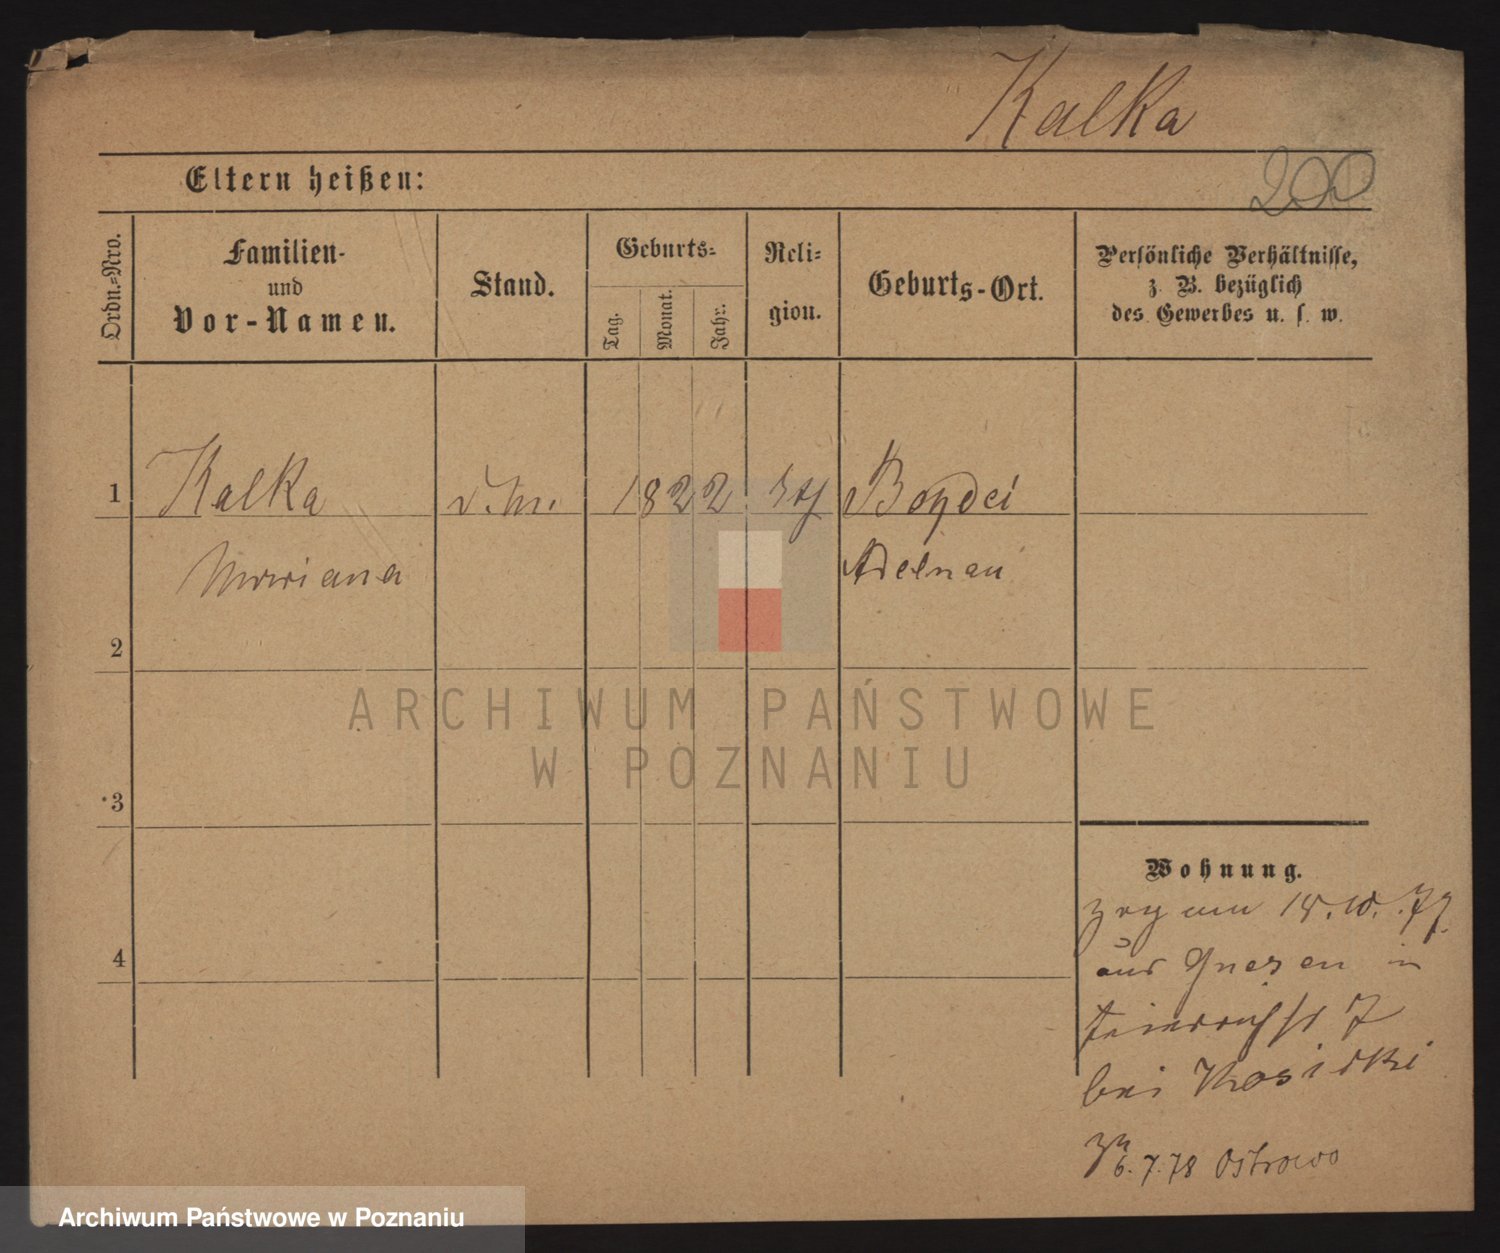 Kalka
200
Eltern heißen:
Ordn.=Nro.
Familien-
und
Vor-Namen.
Stand.
Geburts=
Tag.
Monat.
Jahr.
Reli=
gion.
Geburts-Ort.
Persönliche Verhältnisse,
z. B. bezüglich
des Gewerbes u. s. w.
1
Kalka
1822
Adelnau
2
ARCHIWUM PAŃSTWOWE
W POZNANIU
3
Wohnung.
zog am 10. 77
aus Gnesen in
4
7
bei
6. 7. 78 Ostrowo
Archiwum Państwowe w Poznaniu